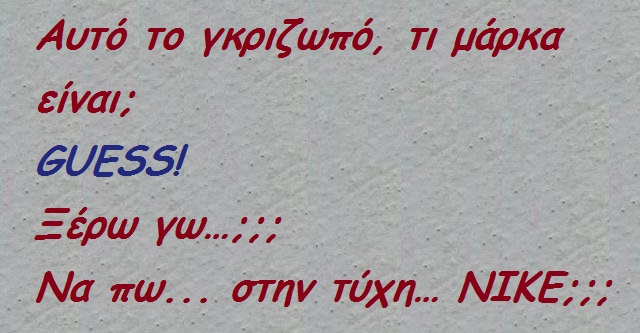 Αυτό το γκριζωπό, τι μάρκα
είναι;
GUESS!
Ξέρω γω...;;;
Να πω... στην τύχη... NIKE;;;